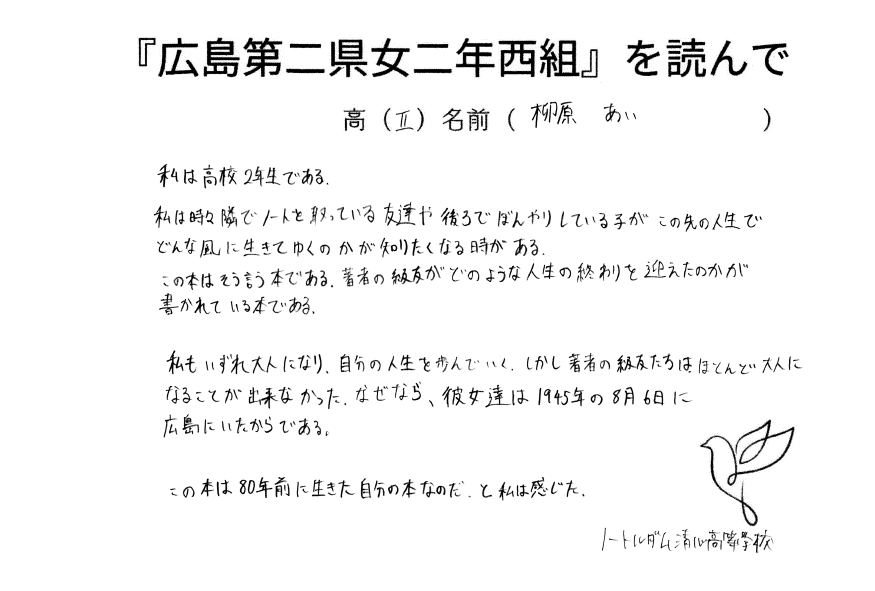 『広島第二県女二年西組』を読んで
高（Ⅱ）名前（ 柳原 あい ）
私は高校2年生である.
私は時々隣でノートを取っている友達や後ろでぼんやりしている子がこの先の人生で
どんな風に生きてゆくのかが知りたくなる時がある.
この本はそう言う本である.著者の級友がどのような人生の終わりを迎えたのかが
書かれている本である.
私もいずれ大人になり、自分の人生を歩んでいく.しかし著者の級友たちはほとんど大人に
なることが出来なかった.なぜなら、彼女達は1945年の8月6日に
広島にいたからである。
この本は80年前に生きた自分の本なのだ.と私は感じた.
ノートルダム清心高等學校